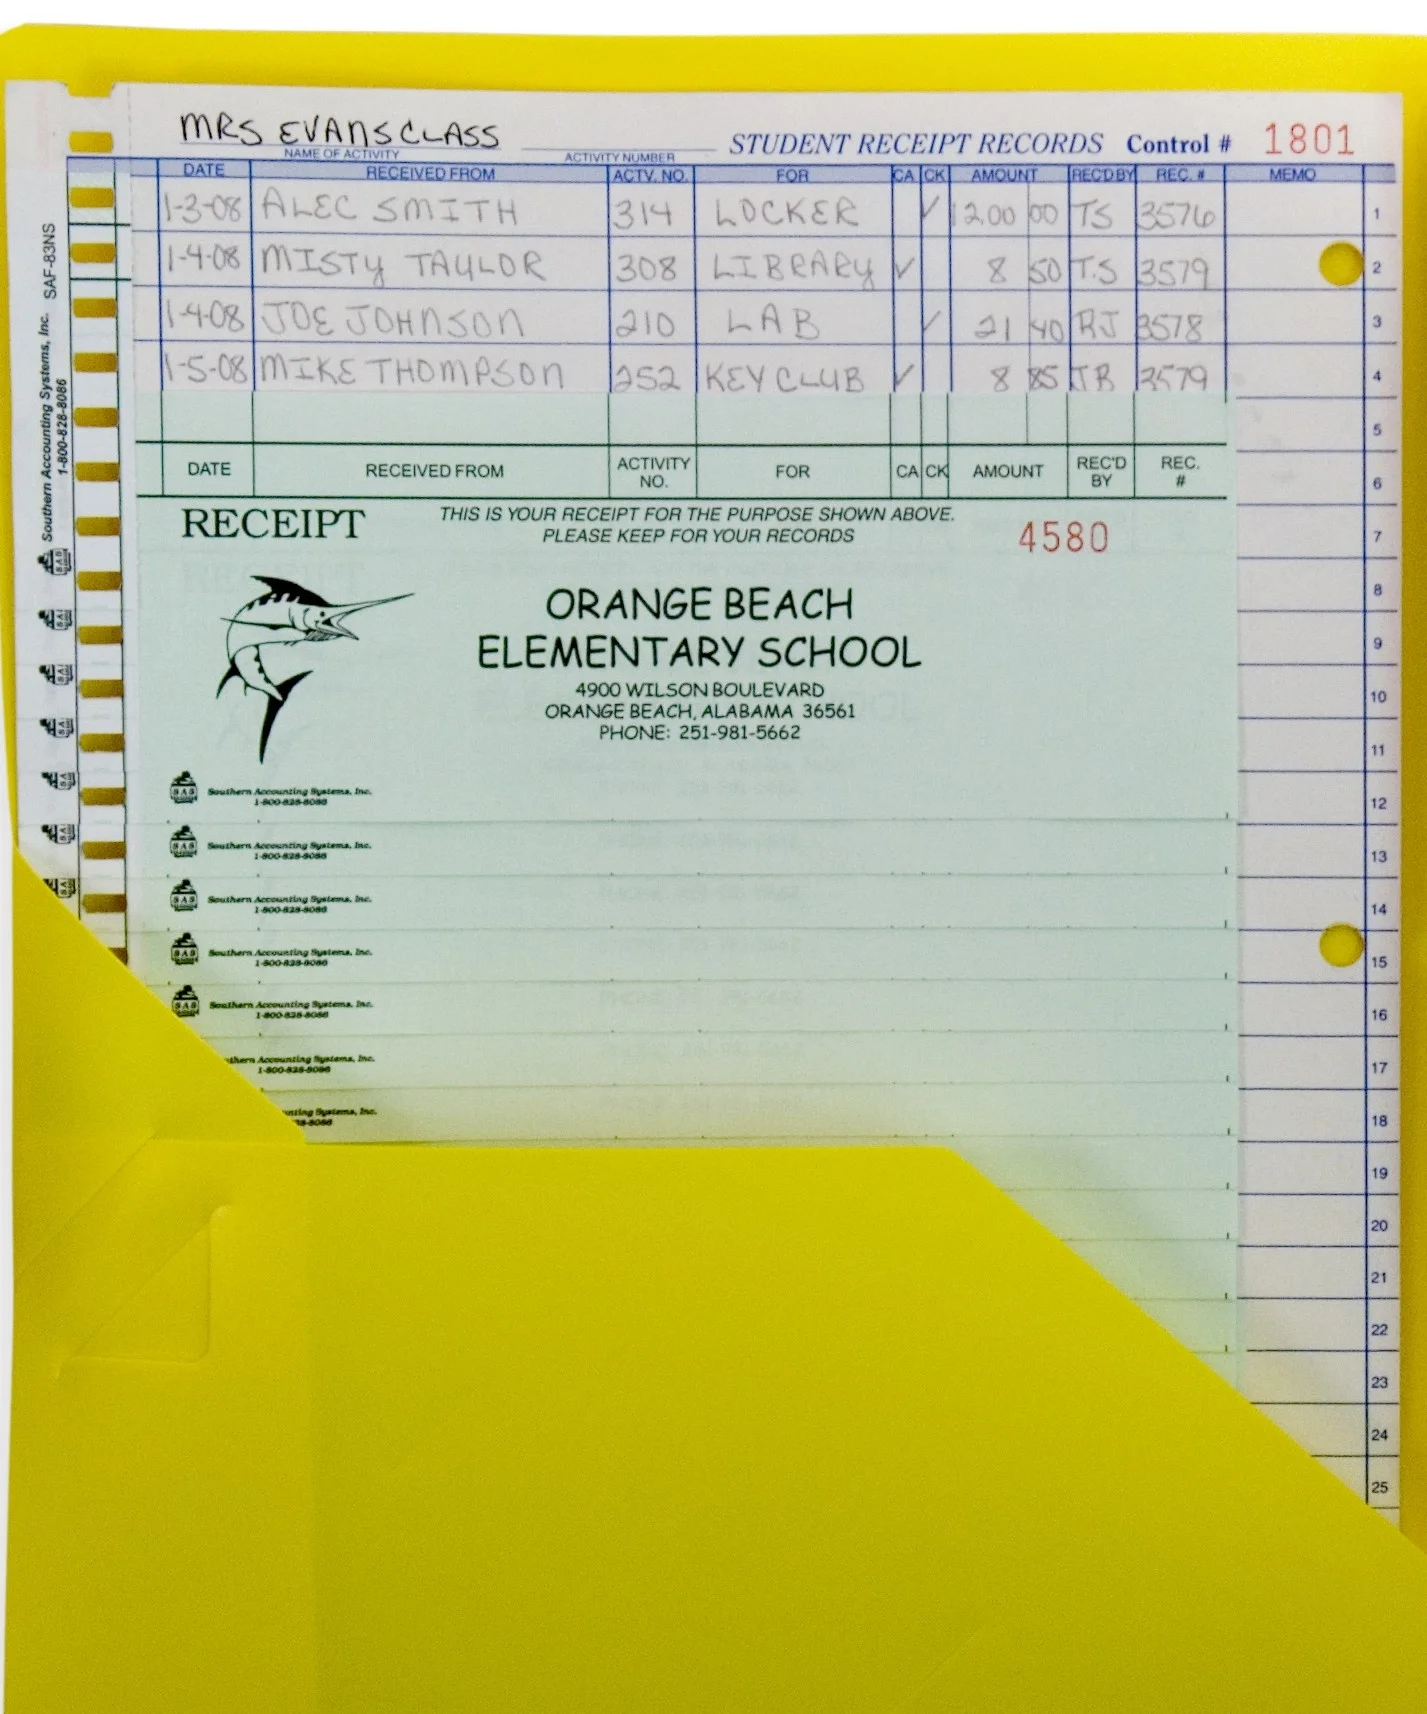 MRS EVANS CLASS
NAME OF ACTIVITY ACTIVITY NUMBER STUDENT RECEIPT RECORDS Control # 1801
DATE RECEIVED FROM ACTV. NO. FOR CA CK AMOUNT REC'D BY REC. # MEMO
1-3-08 ALEC SMITH 314 LOCKER ✓ 1200 00 TS 3576 1
1-4-08 MISTY TAYLOR 308 LIBRARY ✓ 8 50 T.S 3579 2
1-4-08 JOE JOHNSON 210 LAB ✓ 21 40 RJ 3578 3
1-5-08 MIKE THOMPSON 252 KEY CLUB ✓ 8 85 JB 3579 4
5
DATE RECEIVED FROM ACTIVITY NO. FOR CA CK AMOUNT REC'D BY REC. # 6
RECEIPT THIS IS YOUR RECEIPT FOR THE PURPOSE SHOWN ABOVE.
PLEASE KEEP FOR YOUR RECORDS 4580 7
8
ORANGE BEACH
ELEMENTARY SCHOOL 9
4900 WILSON BOULEVARD 10
ORANGE BEACH, ALABAMA 36561
PHONE: 251-981-5662 11
SAS Southern Accounting Systems, Inc.
1-800-828-8086 12
SAS Southern Accounting Systems, Inc.
1-800-828-8086 13
SAS Southern Accounting Systems, Inc.
1-800-828-8086 14
SAS Southern Accounting Systems, Inc.
1-800-828-8086 15
SAS Southern Accounting Systems, Inc.
1-800-828-8086 16
Accounting Systems, Inc.
1-800-828-8086 17
Systems, Inc.
18
19
20
21
22
23
24
25
Southern Accounting Systems, Inc. SAF-83NS
1-800-828-8086
SAS
SAS
SAS
SAS
SAS
SAS